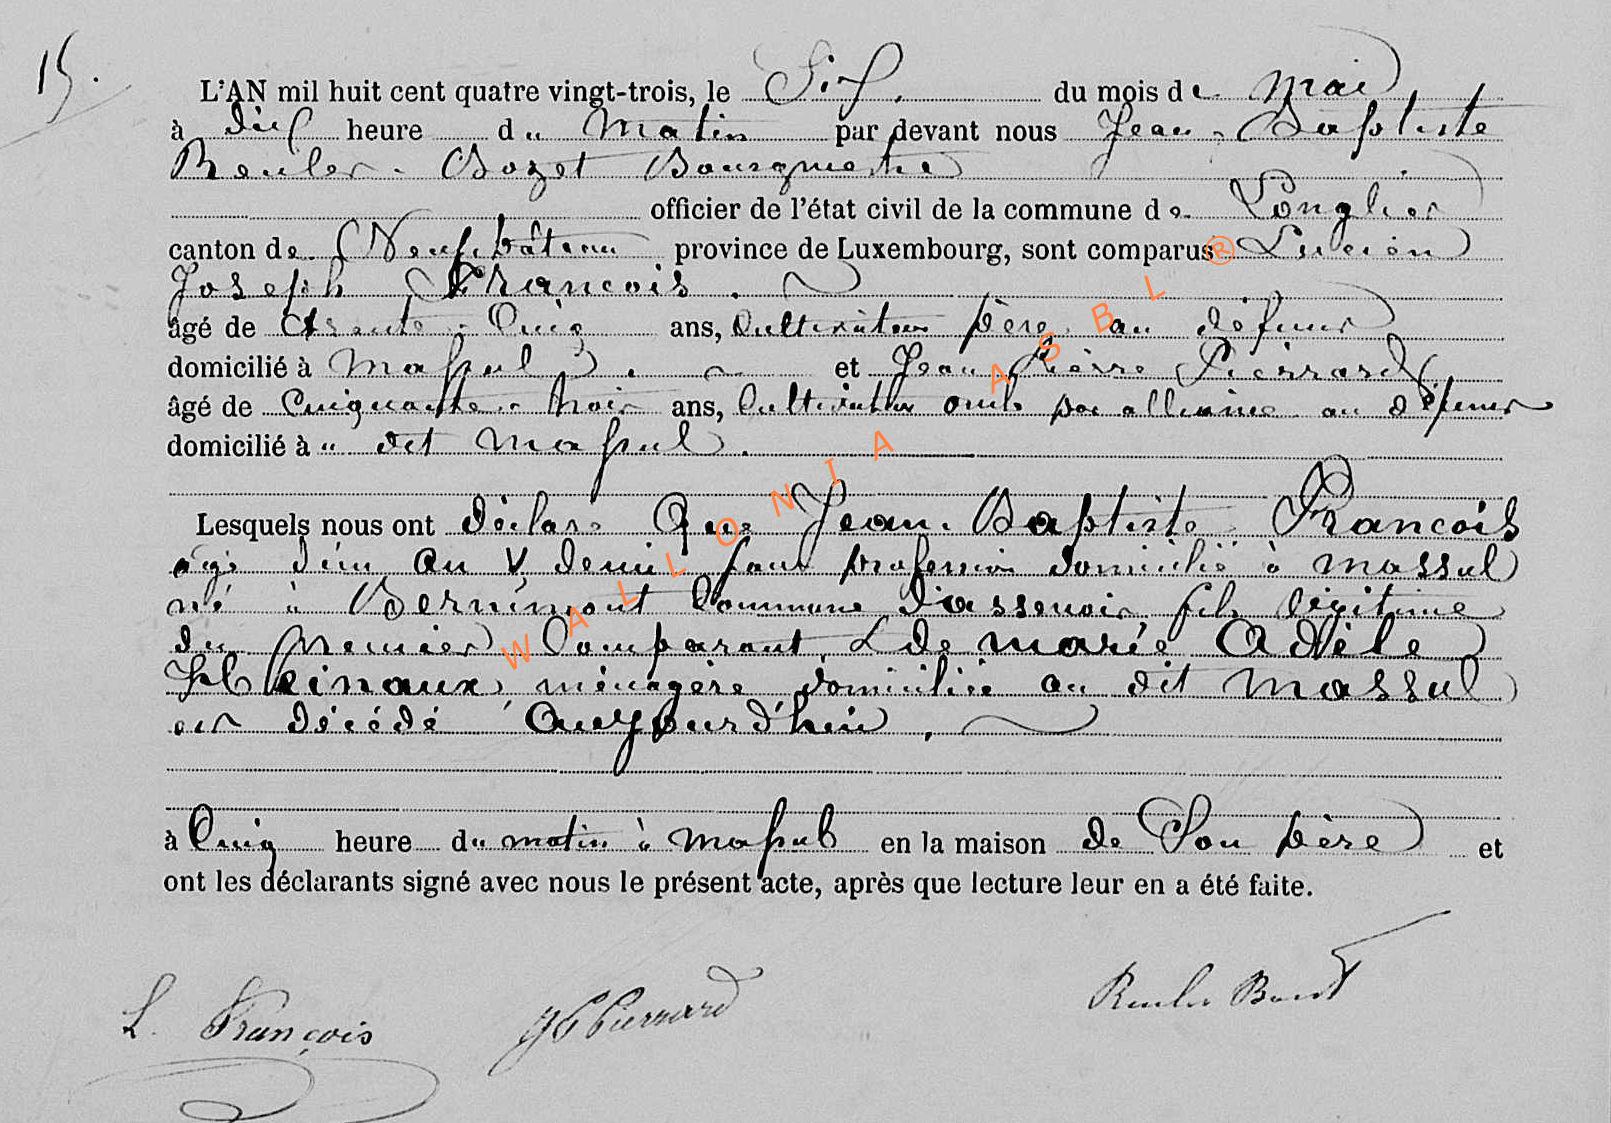 15.
L'AN mil huit cent quatre vingt-trois, le Six. du mois de Mai
à dix heure du Matin par devant nous Jean-Baptiste
Reuler-Bozet Bourgmestre
officier de l'état civil de la commune de Longlier
canton de Neufchâteau province de Luxembourg, sont comparus Lucien
Joseph François.
âgé de trente-Cinq ans, Cultivateur père au défunt
domicilié à Massul. et Jean Pierre Pierrard
âgé de Cinquante-trois ans, Cultivateur oncle par alliance au défunt
domicilié à u dit Massul.
Lesquels nous ont déclaré Que Jean-Baptiste François
âgé d'un an & demi sans profession domicilié à massul
né à Bernimont Commune d'assenois fils légitime
du premier Comparant & de marie Adèle
ménagère domiciliée au dit Massul
est décédé Aujourd'hui.
à Cinq heure du matin à Massul en la maison de Son père et
ont les déclarants signé avec nous le présent acte, après que lecture leur en a été faite.
L. François JP Pierrard Reuler Bozet
WALLONIA ASBL ®